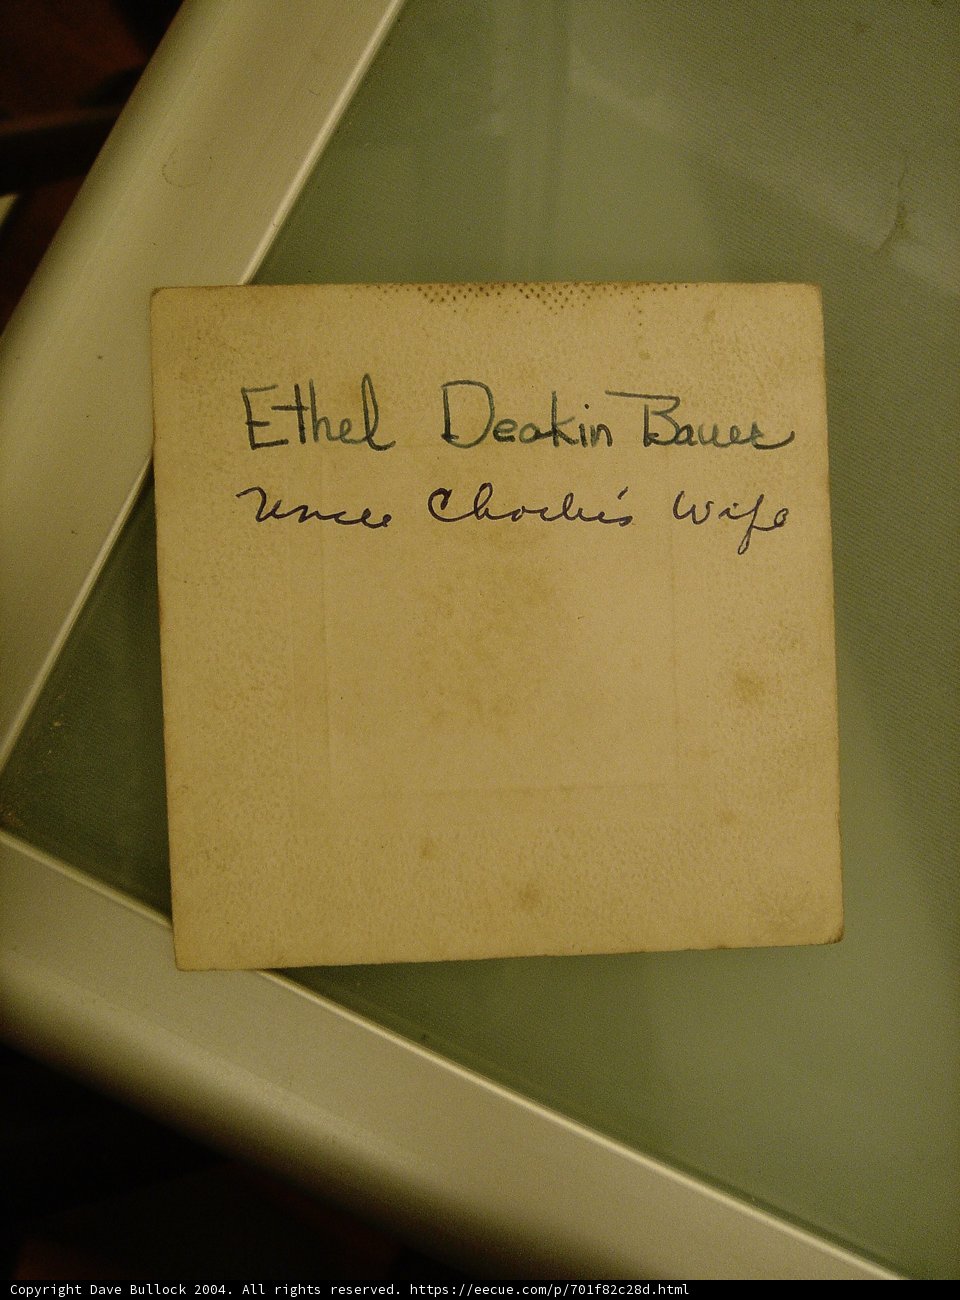 Ethel Deakin Bauer
Uncle Charlie's Wife
Copyright Dave Bullock 2004. All rights reserved. https://eecue.com/p/701f82c28d.html